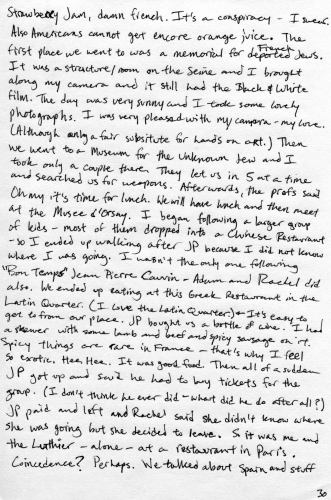 Strawberry Jam, damn french. It's a conspiracy - I swear.
Also Americans cannot get encore orange juice. The
first place we went to was a memorial for deported French Jews.
It was a structure/room on the Seine and I brought
along my camera and it still had the Black & White
film. The day was very sunny and I took some lovely
photographs. I was very pleased with my camera - my love.
(Although only a fair subsitute for hands on art.) Then
we went to a Museum for the Unknown Jew and I
took only a couple there. They let us in 5 at a time
and searched us for weapons. Afterwards, the profs said
Oh my it's time for lunch. We will have lunch and then meet
at the Musee d'Orsay. I began following a larger group
of kids - most of them dropped into a Chinese Restaurant
- so I ended up walking after JP because I did not know
where I was going. I wasn't the only one following
"Bon Temps" Jean Pierre Cauvin - Adam and Rachel did
also. We ended up eating at this Greek Restaurant in the
Latin Quarter. (I love the Latin Quarter) - It's easy to
get to from our place. JP bought us a bottle of wine. I had
a skewer with some lamb and beef and spicy sausage on it.
Spicy things are rare in France - that's why I feel
so exotic. Hee, Hee. It was good food. Then all of a sudden
JP got up and said he had to buy tickets for the
group. (I don't think he ever did - what did he do after all?)
JP paid and left and Rachel said she didn't know where
she was going but she decided to leave. S it was me and
the Luthier - alone - at a restaurant in Paris.
Coincedence? Perhaps. We talked about Spain and stuff
30